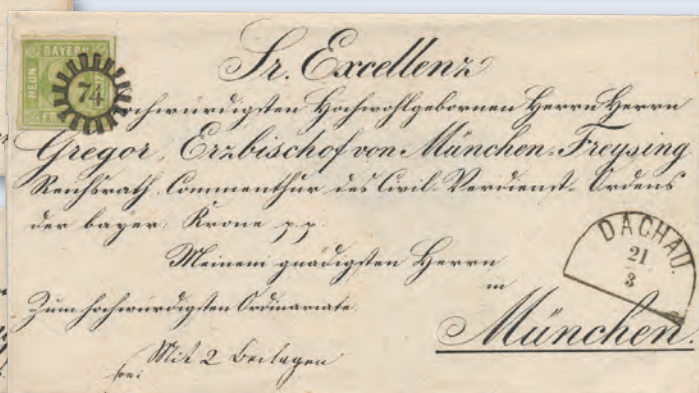 BAYERN
NEUN
74
Sr. Excellenz
Hochwürdigsten Hochwohlgebornen Herrn Herrn
Gregor, Erzbischof von München-Freysing
Reichsrath, Commenthur des Civil-Verdienst-Ordens
der bayer: Krone p.p.
Meinem gnädigsten Herrn
in
DACHAU.
21
3
Zum hochwürdigsten Ordinariate.
München.
Mit 2 Beilagen
frei